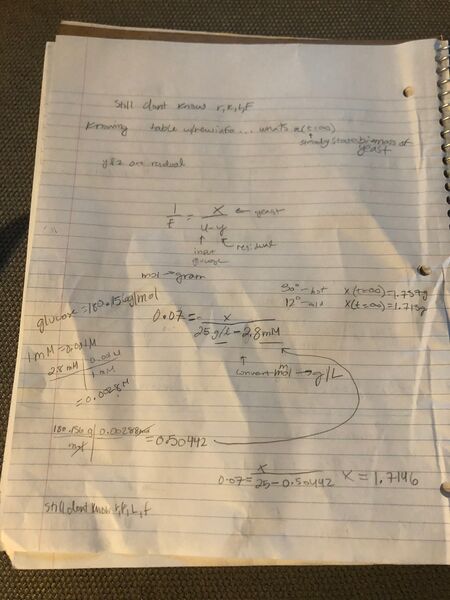 Still dont know r, k, L, F
Knowing table w/new info... whats x(t=∞)
↑ steady state biomass of yeast
y & z are residual
1/f = x/(u-y) ← yeast
↑ input glucose ↖ residual
mol → gram
30° - hot x(t=∞)=1.739g
12° - cold x(t=∞)=1.713g
glucose = 180.156g/mol
0.07 = x/(25 g/L - 2.8mM)
1 mM = 0.001M
2.8 mM | 0.001M
1 mM
= 0.0028M
↑ convert mmol → g/L
180.156 g | 0.0028 mol = 0.50442
mol
0.07 = x/(25-0.50442) x = 1.7146
still dont know r, k, L, f